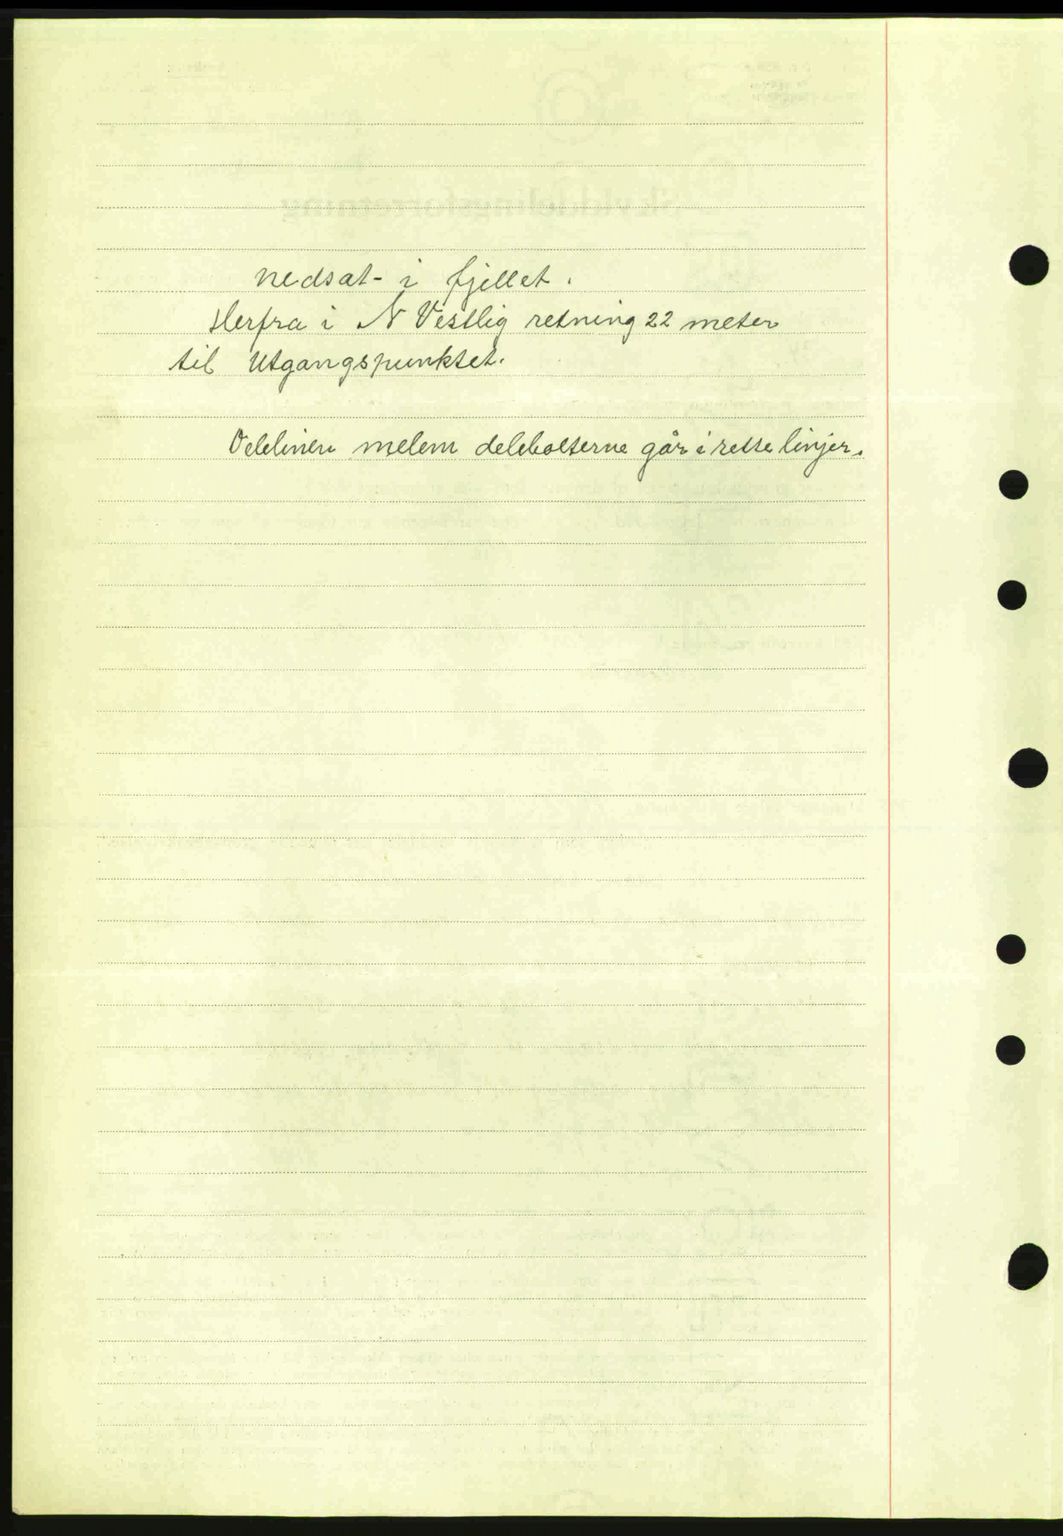 nedsat i fjellet.
Herfra i N Vestlig retning 22 meter
til Utgangspunktet.
Delelinien melem delebolterne går i rette linjer.